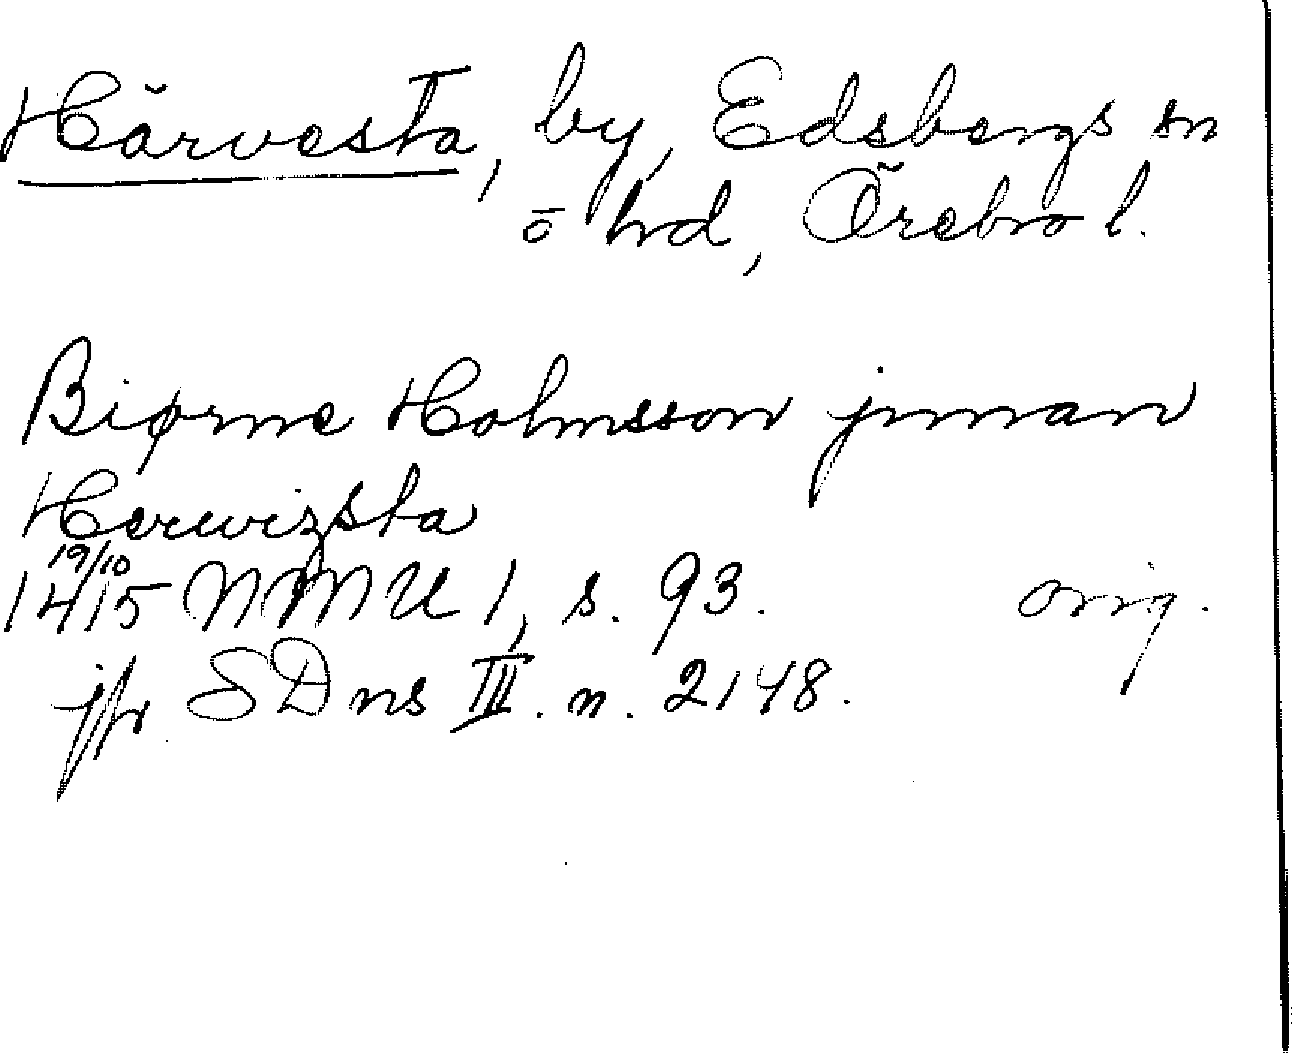 Härvesta, by, Edsbergs sn
o hd, Örebro l.
Biørne Holmsson jnnan
Herwizsta
19/10
1415 NMU 1, s. 93. orig.
jfr. SD ns III. n. 2148.